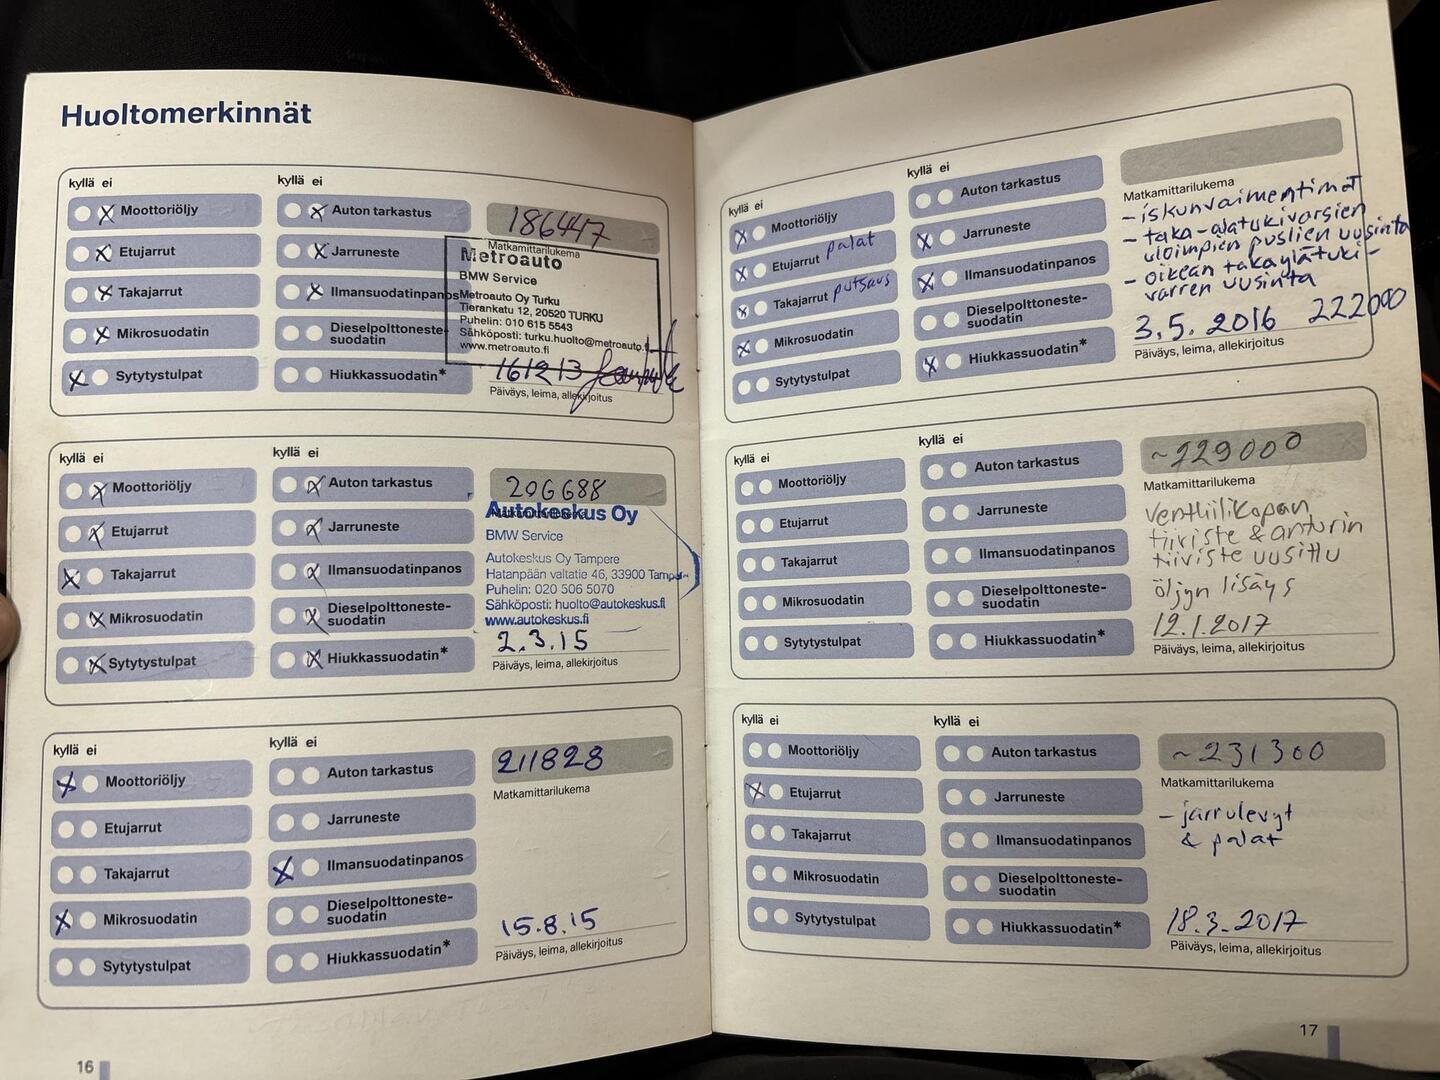 Huoltomerkinnät
kyllä ei
kyllä ei
Moottoriöljy
Auton tarkastus
186447
Matkamittarilukema
Etujarrut
Jarruneste
Metroauto
BMW Service
Takajarrut
Ilmansuodatinpanos
Metroauto Oy Turku
Tierankatu 12, 20520 TURKU
Puhelin: 010 615 5543
Mikrosuodatin
Dieselpolttoneste-
suodatin
Sähköposti: turku.huolto@metroauto.
www.metroauto.fi
Sytytystulpat
Hiukkassuodatin*
161213
Päiväys, leima, allekirjoitus
kyllä ei
kyllä ei
Moottoriöljy
Auton tarkastus
206688
Matkamittarilukema
Autokeskus Oy
Etujarrut
Jarruneste
BMW Service
Takajarrut
Ilmansuodatinpanos
Autokeskus Oy Tampere
Hatanpään valtatie 46, 33900 Tampere
Puhelin: 020 506 5070
Mikrosuodatin
Dieselpolttoneste-
suodatin
Sähköposti: huolto@autokeskus.fi
www.autokeskus.fi
Sytytystulpat
Hiukkassuodatin*
2.3.15
Päiväys, leima, allekirjoitus
kyllä ei
kyllä ei
Moottoriöljy
Auton tarkastus
211828
Matkamittarilukema
Etujarrut
Jarruneste
Takajarrut
Ilmansuodatinpanos
Mikrosuodatin
Dieselpolttoneste-
suodatin
15.8.15
Sytytystulpat
Hiukkassuodatin*
Päiväys, leima, allekirjoitus
16
kyllä ei
kyllä ei
Moottoriöljy
Auton tarkastus
Matkamittarilukema
Etujarrut palat
Jarruneste
- iskunvaimentimet
- taka-alatukivarsien
uloimpien puslien uusinta
Takajarrut putsaus
Ilmansuodatinpanos
- oikean takaylätuki-
varren uusinta
Mikrosuodatin
Dieselpolttoneste-
suodatin
3.5.2016 222000
Sytytystulpat
Hiukkassuodatin*
Päiväys, leima, allekirjoitus
kyllä ei
kyllä ei
Moottoriöljy
Auton tarkastus
~229000
Matkamittarilukema
Etujarrut
Jarruneste
Venttiilikopan
tiiviste & anturin
Takajarrut
Ilmansuodatinpanos
tiiviste uusittu
Mikrosuodatin
Dieselpolttoneste-
suodatin
öljyn lisäys
12.1.2017
Sytytystulpat
Hiukkassuodatin*
Päiväys, leima, allekirjoitus
kyllä ei
kyllä ei
Moottoriöljy
Auton tarkastus
~231300
Matkamittarilukema
Etujarrut
Jarruneste
- jarrulevyt
& palat
Takajarrut
Ilmansuodatinpanos
Mikrosuodatin
Dieselpolttoneste-
suodatin
18.3.2017
Sytytystulpat
Hiukkassuodatin*
Päiväys, leima, allekirjoitus
17